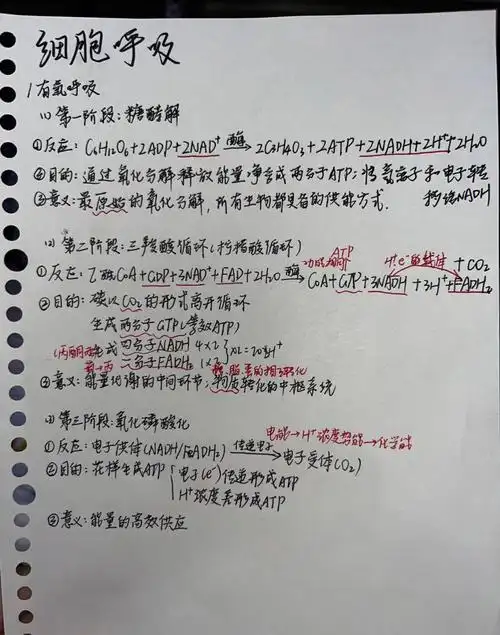 细胞呼吸
1.有氧呼吸
(1) 第一阶段:糖酵解
①反应: C6H12O6+2ADP+2NAD+ 酶 2C3H4O3+2ATP+2NADH+2H++2H2O
②目的:通过氧化分解释放能量净合成两分子ATP;将氢离子和电子转
移给NADH
③意义:最原始的氧化分解,所有生物都具备的供能方式.
(2) 第二阶段:三羧酸循环(柠檬酸循环)
ATP
H+、e-的载体
①反应:乙酰CoA+GDP+3NAD++FAD+2H2O 酶 CoA+GTP+3NADH+3H++FADH2+CO2
②目的:碳以CO2的形式离开循环
生成两分子GTP(等效ATP)
生成四分子NADH 4×2
二分子FADH2 1×2 }×2=20个H+
糖、脂、蛋的相互转化
③意义:能量代谢的中间环节;物质转化的中枢系统
(3) 第三阶段:氧化磷酸化
电能→H+浓度势能→化学能
①反应:电子供体(NADH/FADH2) 传递电子 电子受体(O2)
②目的:花样生成ATP { 电子(e-)传递形成ATP
H+浓度差形成ATP
③意义:能量的高效供应